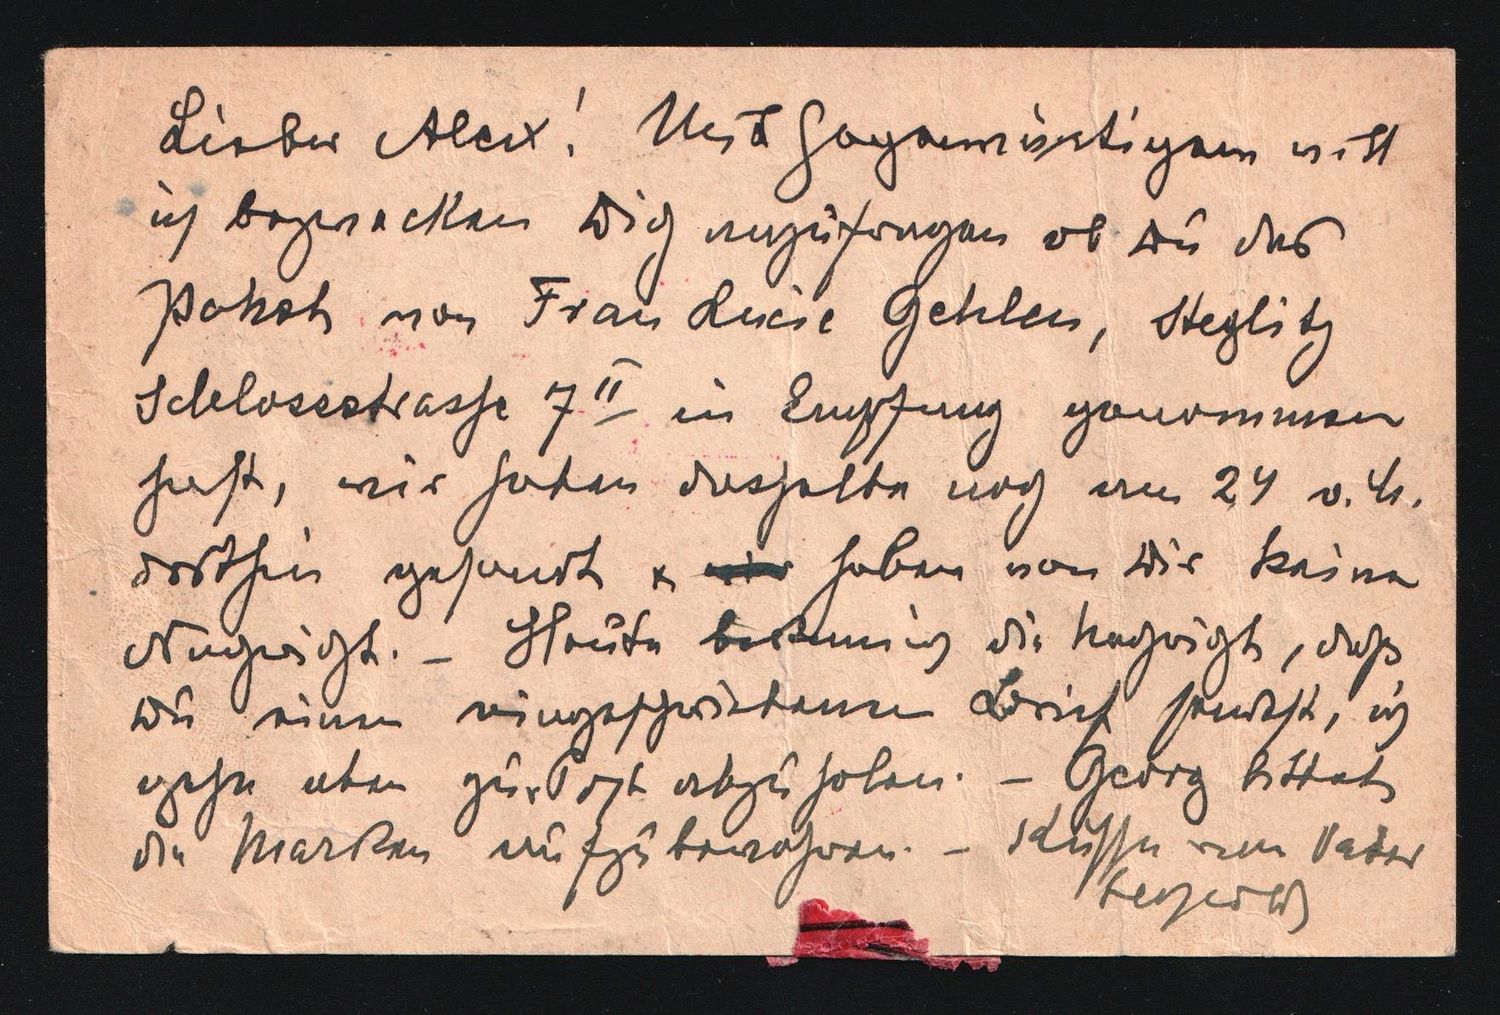 Lieber Alex! Mit Gegenwärtigem will
ich bezwecken Dich anzufragen ob Du das
Paket von Frau Lucie Gehlen, Steglitz
Schlossstrasse 7 II in Empfang genommen
hast, wir haben dasselbe noch am 24 v. M.
dorthin gesandt & haben von Dir keine
Nachricht. – Heute die Nachricht, daß
Du einen eingeschriebenen Brief sendest, ich
gehe eben zur Post abzuholen. – Georg bittet
die Marken aufzubewahren. – Küsse vom Vater